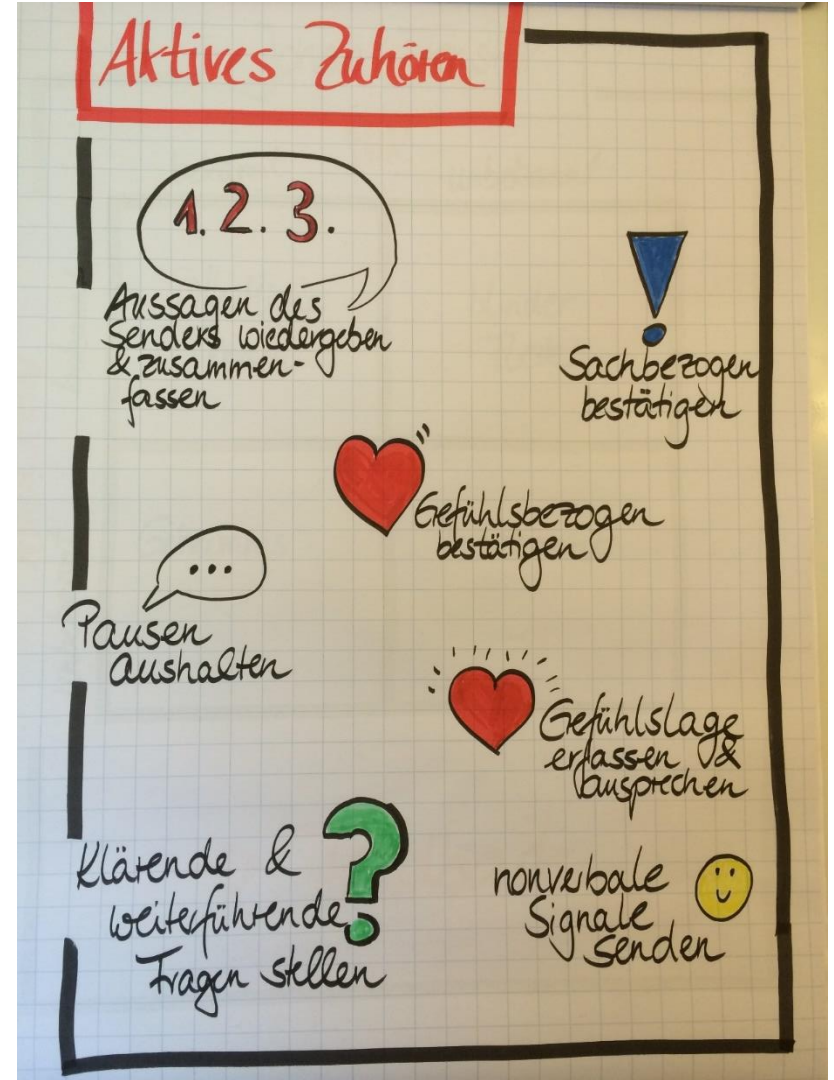 Aktives Zuhören
1. 2. 3.
Aussagen des
Senders wiedergeben
& zusammen-
fassen
Sachbezogen
bestätigen
Gefühlsbezogen
bestätigen
...
Pausen
aushalten
Gefühlslage
erfassen &
ausprechen
Klärende &
weiterführende
Fragen stellen
?
nonverbale
Signale
senden